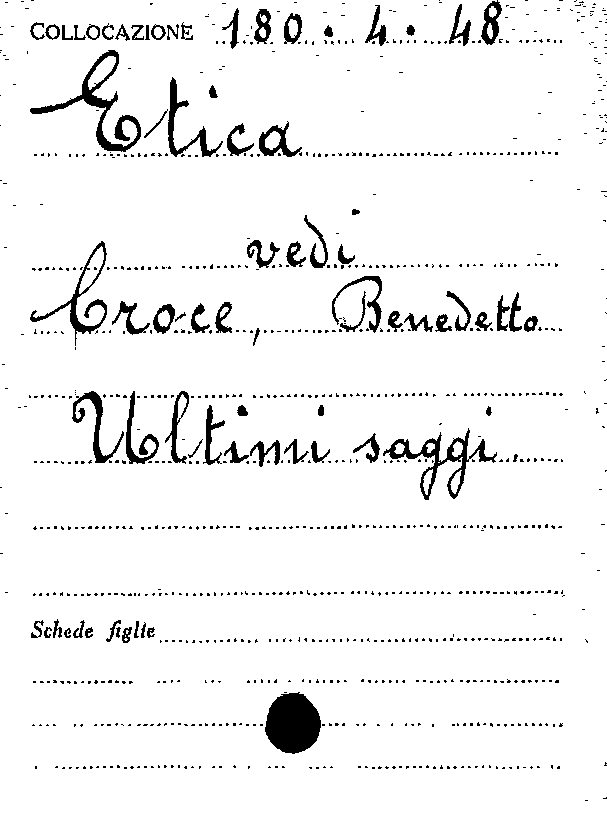 COLLOCAZIONE 180.4.48
Etica
vedi
Croce, Benedetto
Ultimi saggi.
Schede figlie